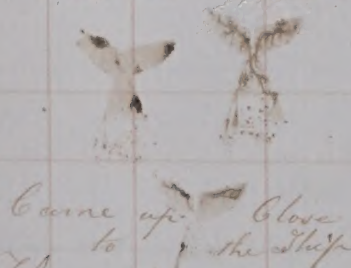 Came up Close
to the Ship